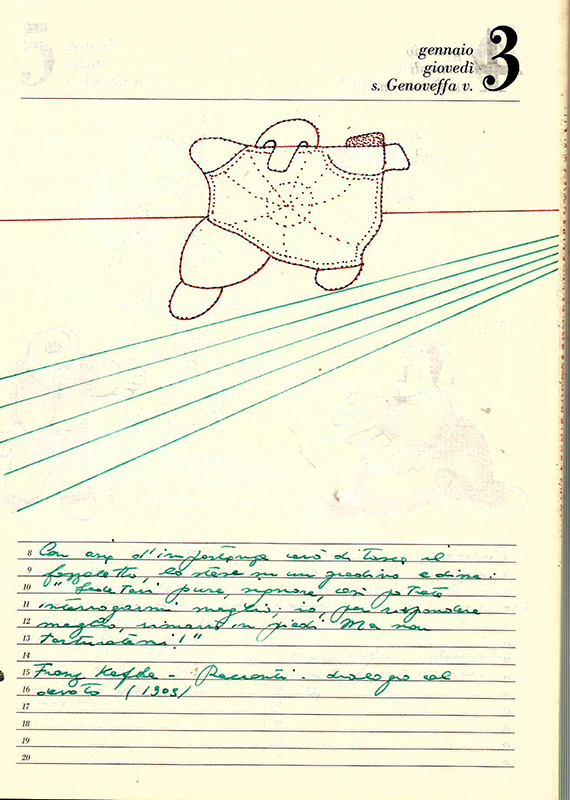 gennaio
giovedì
s. Genoveffa v.
3
8 Con aria d'importanza cavò di tasca il
9 fazzoletto, lo stese su un gradino e disse:
10 "Sedetevi pure, signore, così potrete
11 interrogarmi meglio, io, per rispondere
12 meglio, rimarrò in piedi. Ma non
13 torturatemi!"
14
15 Franz Kafka - Racconti - dialogo col
16 devoto (1909)
17
18
19
20